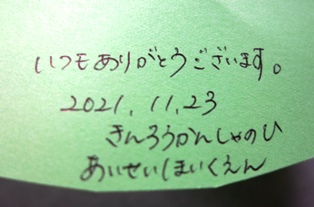 いつもありがとうございます。
2021.11.23
きんろうかんしゃのひ
あいせいしほいくえん